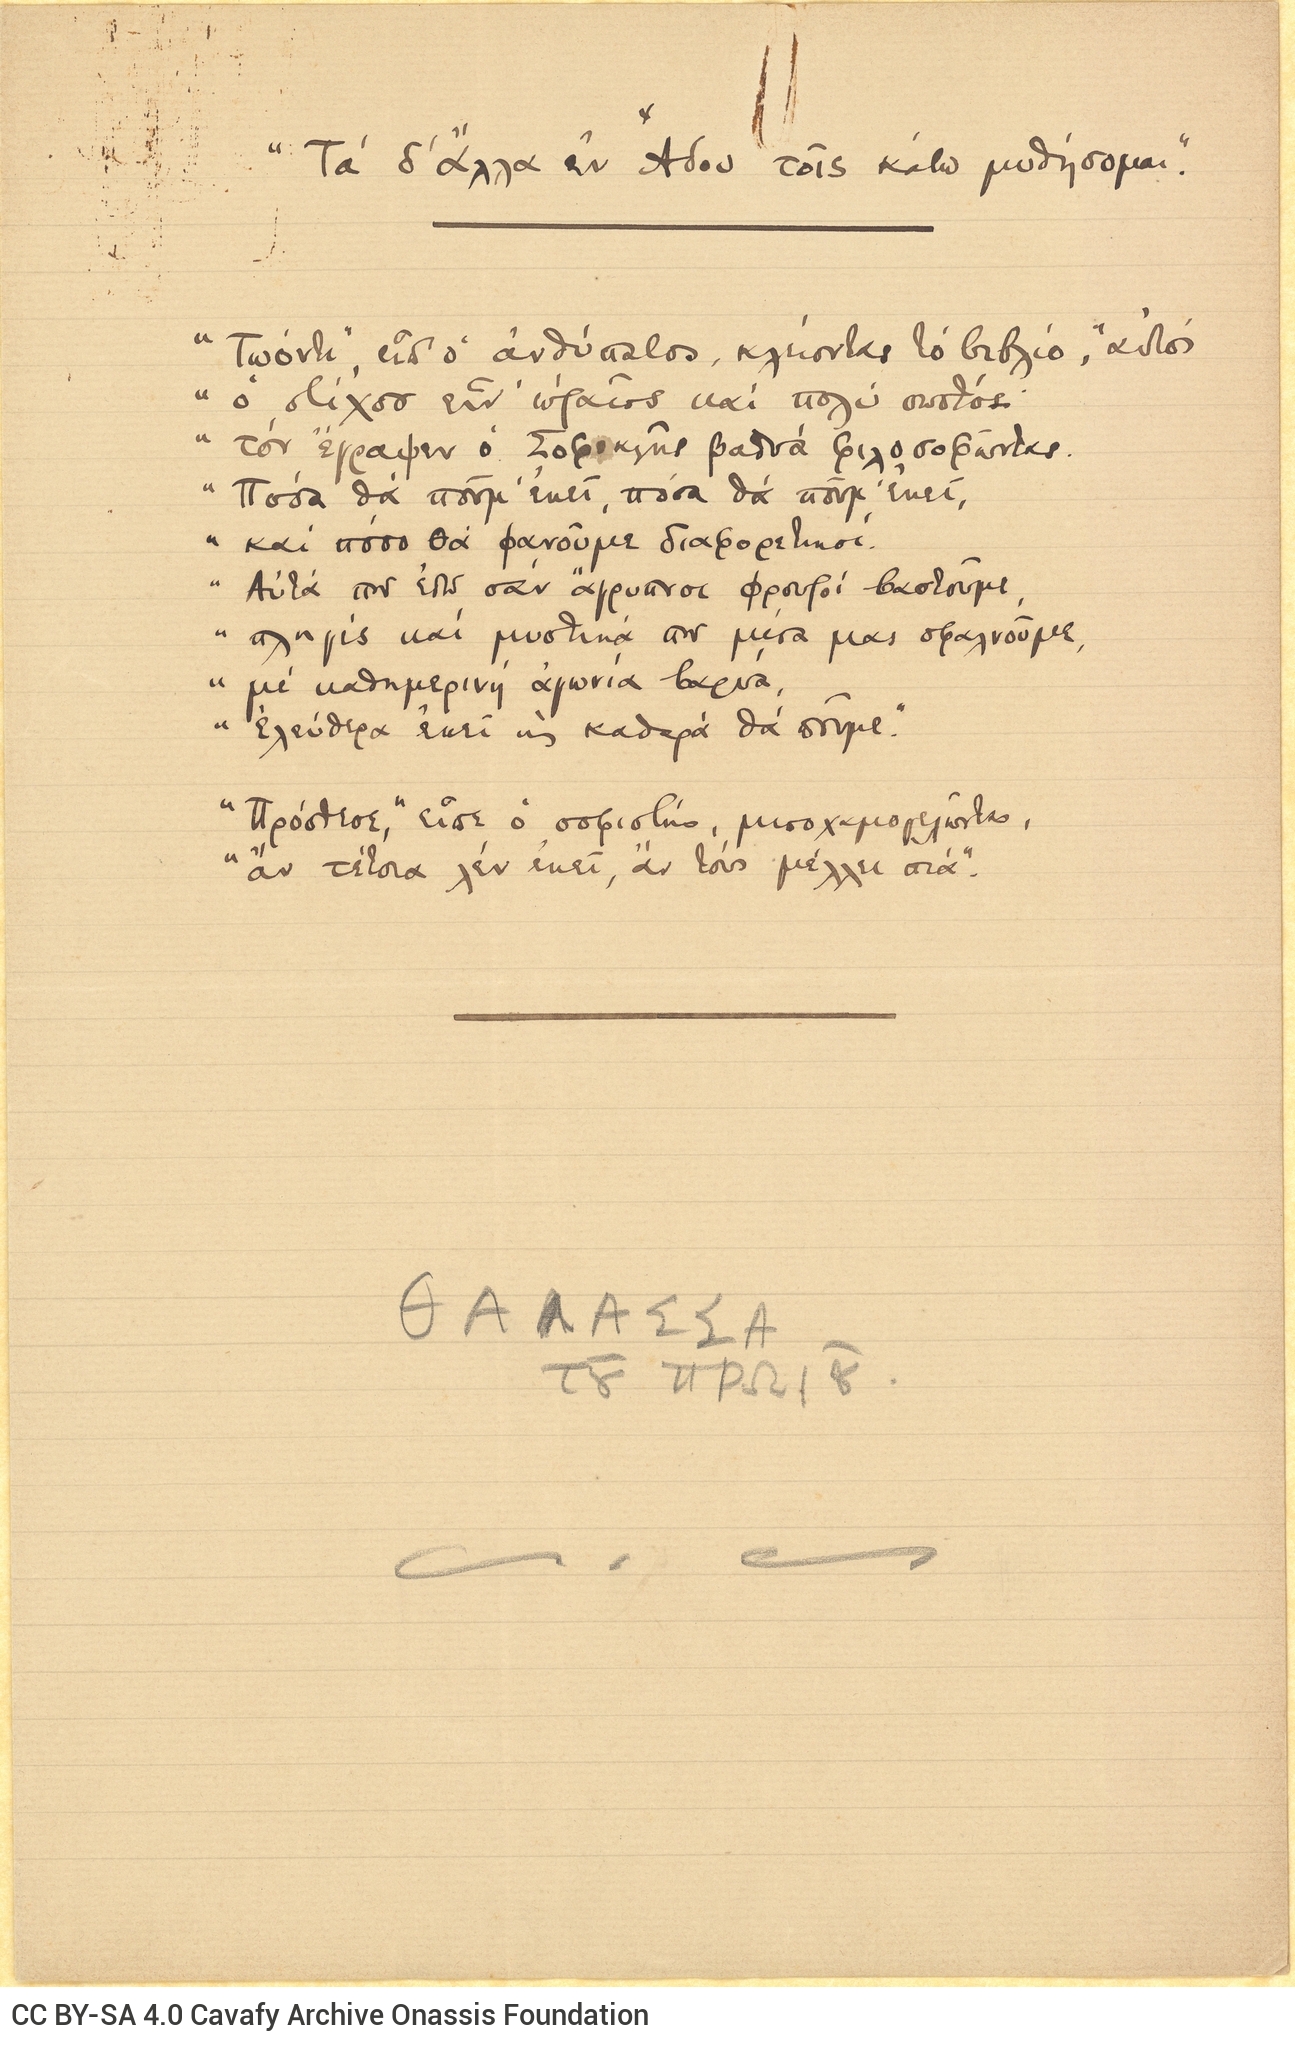 “ Τά δ’ ἄλλα ἐν Ἅδου τοῖς κάτω μυθήσομαι”.
“ Τωόντι”, εἶπ’ ὁ ἀνθύπατος, κλείοντας τό βιβλίο, “αὐτός
“ ὁ στίχος εἶν’ ὡραῖος καί πολύ σωστός·
“ τόν ἔγραψεν ὁ Σοφοκλῆς βαθυά φιλοσοφῶντας.
“ Πόσα θά ποῦμ’ ἐκεῖ, πόσα θά ποῦμ’ ἐκεῖ,
“ καί πόσο θά φανοῦμε διαφορετικοί.
“ Αὐτά που ἐδώ σάν ἄγρυπνοι φρουροί βαστοῦμε,
“ πληγές καί μυστικά που μέσα μας σφαλνοῦμε,
“ μέ καθημερινή ἀγωνία βαρυά,
“ ἐλεύθερα ἐκεῖ κι καθαρά θά ποῦμε”.
“ Πρόσθεσε,” εἶπε ὁ σοφιστής, μισοχαμογελῶντας,
“ ἄν τέτοια λέν ἐκεῖ, ἄν τούς μέλλει πιά”.
ΘΑΛΑΣΣΑ
τȣ͂ ΠΡΩΙȣ͂.
CC BY-SA 4.0 Cavafy Archive Onassis Foundation